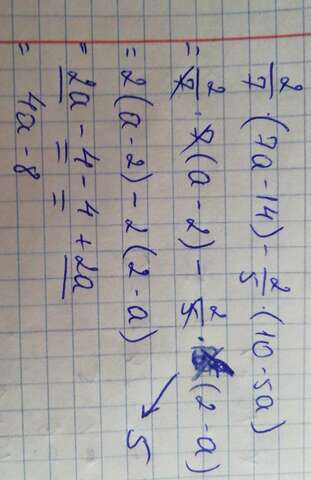 2/7 · (7a - 14) - 2/5 · (10 - 5a)
= 2/7 · 7(a - 2) - 2/5 · (2 - a)
5
= 2(a - 2) - 2(2 - a)
= 2a - 4 - 4 + 2a
= 4a - 8